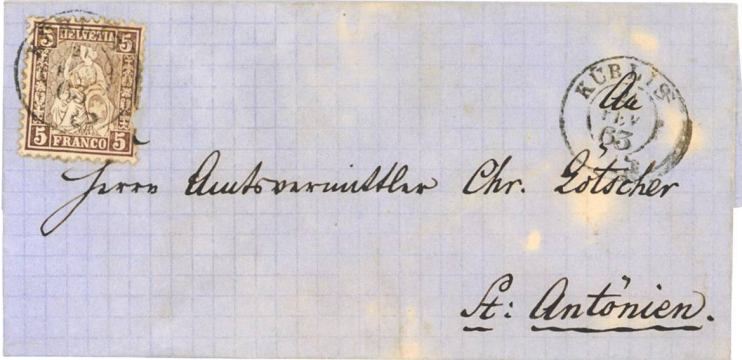 5 HELVETIA 5
5 FRANCO 5
KÜBLIS
FEV
63
An
Herrn Amtsvermittler Chr. Lötscher
St: Antönien.